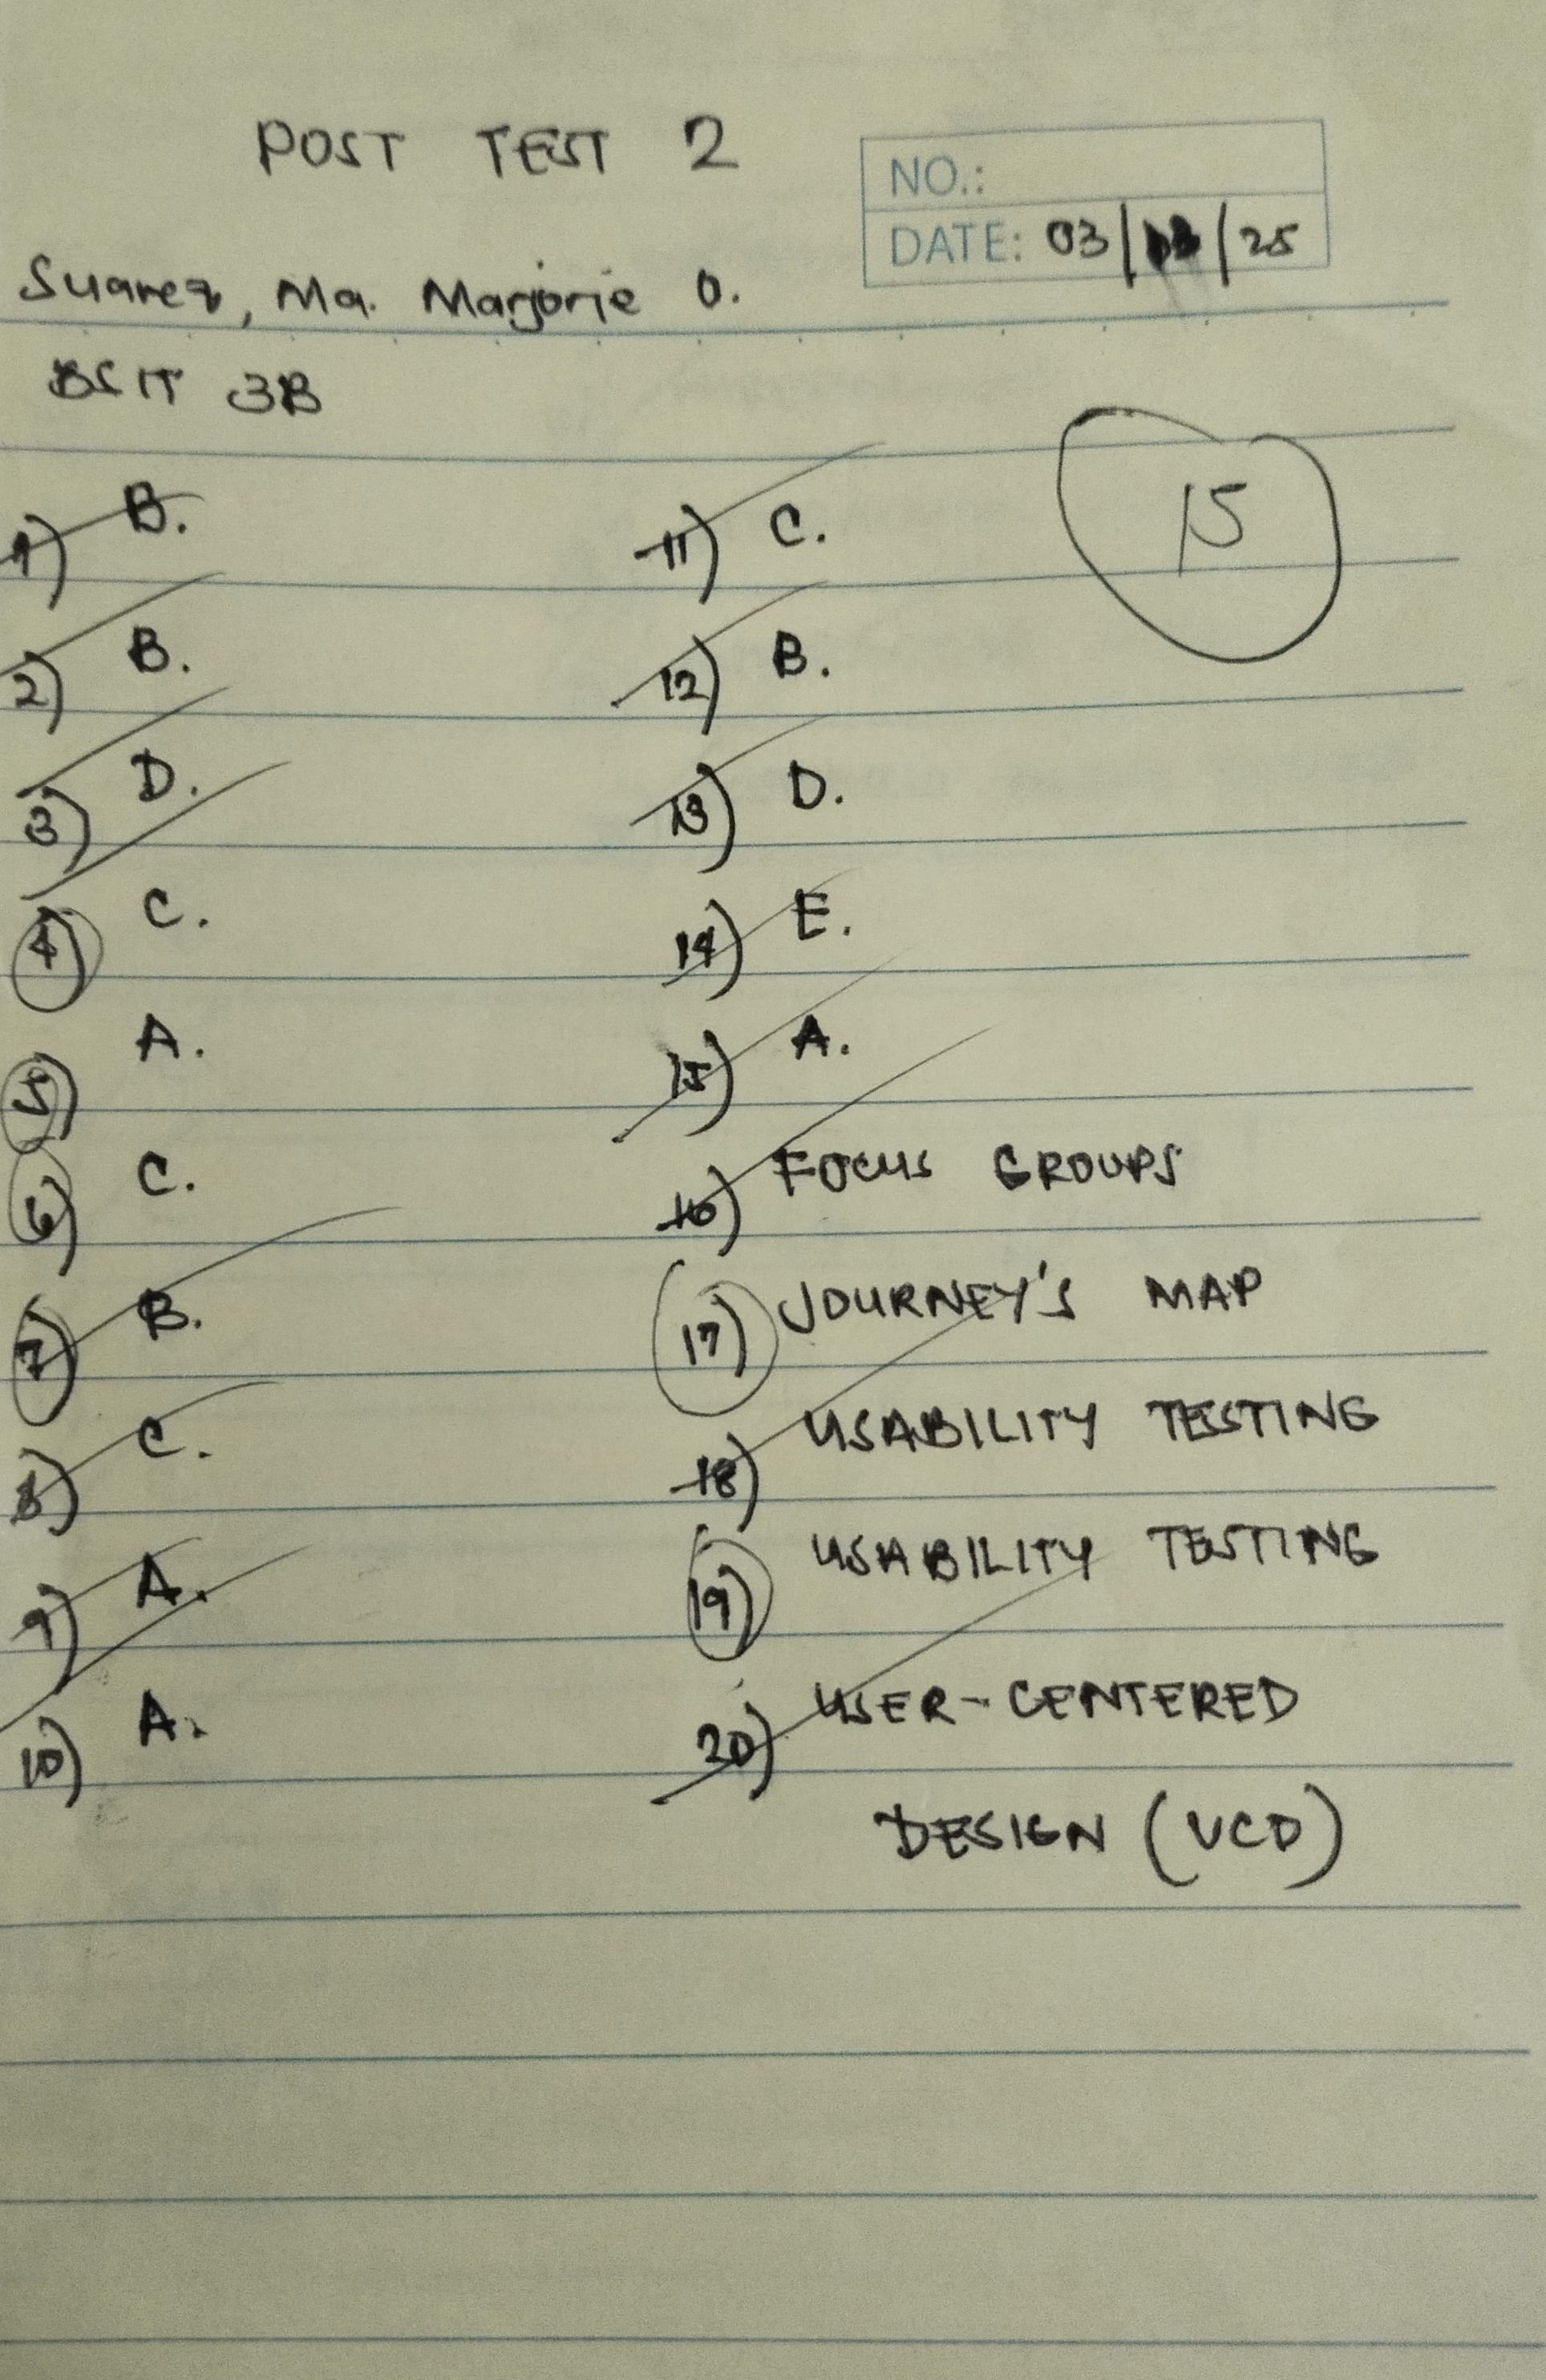 POST TEST 2
NO.:
DATE: 03/ /25
Suarez, Ma. Marjorie O.
BSIT 3B
15
1) B.
2) B.
3) D.
4) C.
5) A.
6) C.
7) B.
8) C.
9) A.
10) A.
11) C.
12) B.
13) D.
14) E.
15) A.
16) FOCUS GROUPS
17) JOURNEY'S MAP
18) USABILITY TESTING
19) USABILITY TESTING
20) USER-CENTERED
DESIGN (UCD)